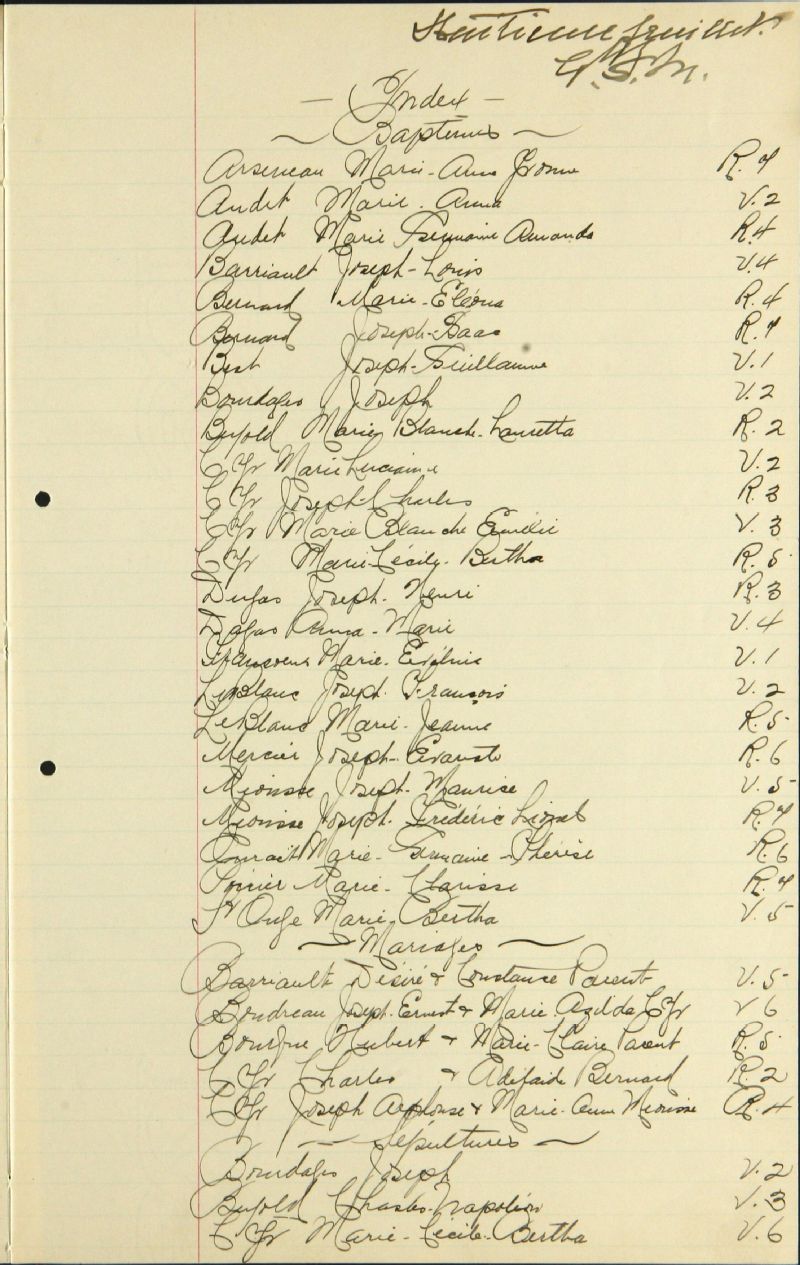 Huitième feuillet.
— Index —
~ Baptêmes ~
Arseneau Marie-Anne Yvonne R. 7
Audet Marie-Anna V. 2
Audet Marie Germaine Amanda R. 4
Barriault Joseph-Louis V. 4
Bernard Marie-Eléona R. 4
Bernard Joseph-Isaac R. 7
Best Joseph-Guillaume V. 1
Bourdages Joseph V. 2
Bujold Marie Blanche-Lauretta R. 2
Cyr Marie Lucienne V. 2
Cyr Joseph-Charles R. 3
Cyr Marie Blanche Emilie V. 3
Cyr Marie-Cécile-Bertha R. 5
Dugas Joseph-Henri R. 3
Dugas Anna-Marie V. 4
Marie-Eugénie V. 1
LeBlanc Joseph-François V. 2
LeBlanc Marie-Jeanne R. 5
Mercier Joseph-Evariste R. 6
Miousse Joseph-Maurice V. 5
Miousse Joseph-Frédéric Lionel R. 7
Marie-Germaine-Thérèse R. 6
Poirier Marie-Clarisse R. 7
St Onge Marie Bertha V. 5
~ Mariages ~
Barriault Désiré & Constance Parent V. 5
Boudreau Joseph-Ernest & Marie Azilda Cyr V 6
Bourque Hubert & Marie-Claire Parent R. 5
Cyr Charles & Adélaide Bernard R. 2
Cyr Joseph Alphonse & Marie-Anne Miousse R. 4
~ Sépultures ~
Bourdages Joseph V. 2
Bujold Charles-Napoléon V. 3
Cyr Marie-Cécile-Bertha V. 6